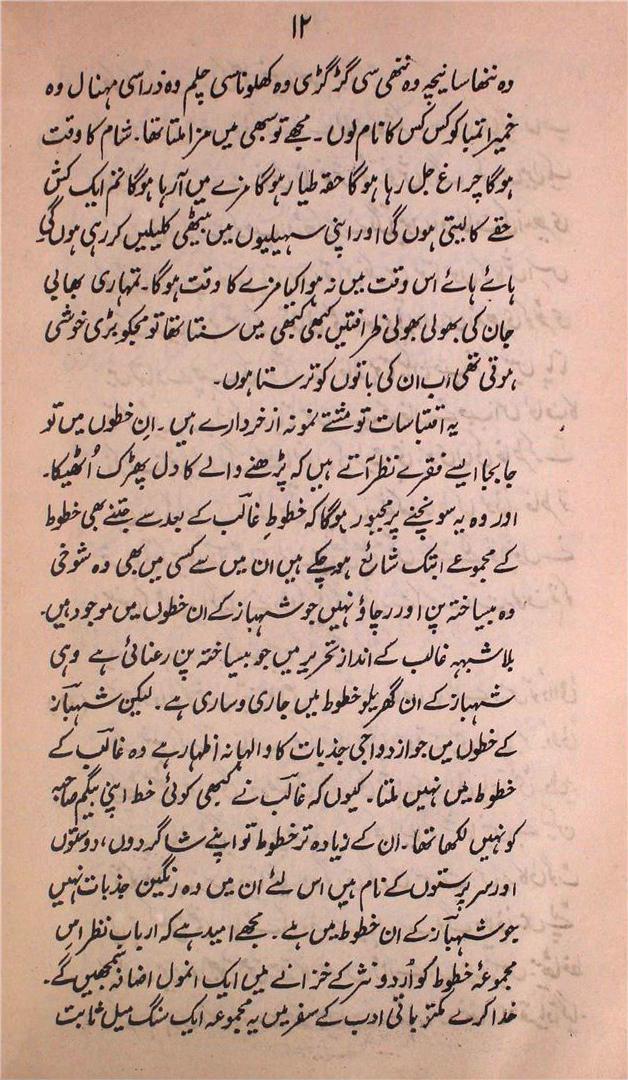 ۱۲
وہ ننھا سا نیچہ وہ ننھی سی گڑگڑی وہ کھلونا سی چلم وہ ذرا سی مہنال وہ
خمیرا تمباکو کس کس کا نام لوں۔ مجھے تو سبھی میں مزا ملتا تھا۔ شام کا وقت
ہوگا چراغ جل رہا ہوگا حقہ طیار ہوگا مزے میں آرہا ہوگا تم ایک کش
حقے کا لیتی ہوں گی اور اپنی سہیلیوں میں بیٹھی کلیلیں کر رہی ہوں گی
ہائے ہائے اس وقت میں نہ ہوا کیا مزے کا وقت ہوگا۔ تمہاری بھابی
جان کی بھولی بھولی ظرافتیں کبھی کبھی میں سنتا تھا تو مجکو بڑی خوشی
ہوتی تھی اب ان کی باتوں کو ترستا ہوں۔
یہ اقتباسات تو مشتے نمونہ از خردارے ہیں۔ اِن خطوں میں تو
جابجا ایسے فقرے نظر آتے ہیں کہ پڑھنے والے کا دل پھڑک اُٹھیگا۔
اور وہ یہ سونچنے پر مجبور ہوگا کہ خطوطِ غالب کے بعد سے جتنے بھی خطوط
کے مجموعے ابتک شائع ہوچکے ہیں ان میں سے کسی میں بھی وہ شوخی
وہ بیساختہ پن اور رچاؤ نہیں جو شہباز کے ان خطوں میں موجود ہیں۔
بلاشبہہ غالب کے اندازِ تحریر میں جو بیساختہ پن رعنائی ہے وہی
شہباز کے ان گھریلو خطوط میں جاری و ساری ہے۔ لیکن شہباز
کے خطوں میں جو ازدواجی جذبات کا والہانہ اظہار ہے وہ غالب کے
خطوط میں نہیں ملتا۔ کیوں کہ غالب نے کبھی کوئی خط اپنی بیگم صاحبہ
کو نہیں لکھا تھا۔ ان کے زیادہ تر خطوط تو اپنے شاگردوں، دوستوں
اور سرپرستوں کے نام ہیں اس لئے ان میں وہ رنگین جذبات نہیں
جو شہباز کے ان خطوط میں ہے۔ مجھے امید ہے کہ اربابِ نظر اس
مجموعۂ خطوط کو اُردو نثر کے خزانے میں ایک انمول اضافہ سمجھیں گے۔
خدا کرے مکتوباتی ادب کے سفر میں یہ مجموعہ ایک سنگ میل ثابت